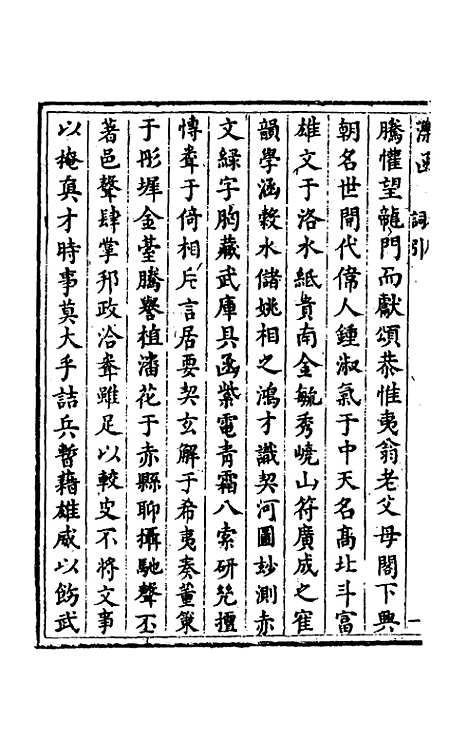 騰懽望龍門而獻頌恭惟夷翁老父母閣下興
朝名世間代偉人鍾淑氣于中天名高北斗富
雄文于洛水紙貴南金毓秀嶢山符廣成之寉
韻學涵穀水儲姚相之鴻才識契河圖妙測赤
文綠字胸藏武庫具函紫電青霜八索研㒵擅
慱聋于倚相片言居要契玄解于希夷奏董策
于彤墀金臺騰譽植潘花于赤縣聊攝馳聲丕
著邑聲肆掌邦政洽聋雖足以較叟不將文事
以掩真才時事莫大乎詰兵暫藉雄威以飭武